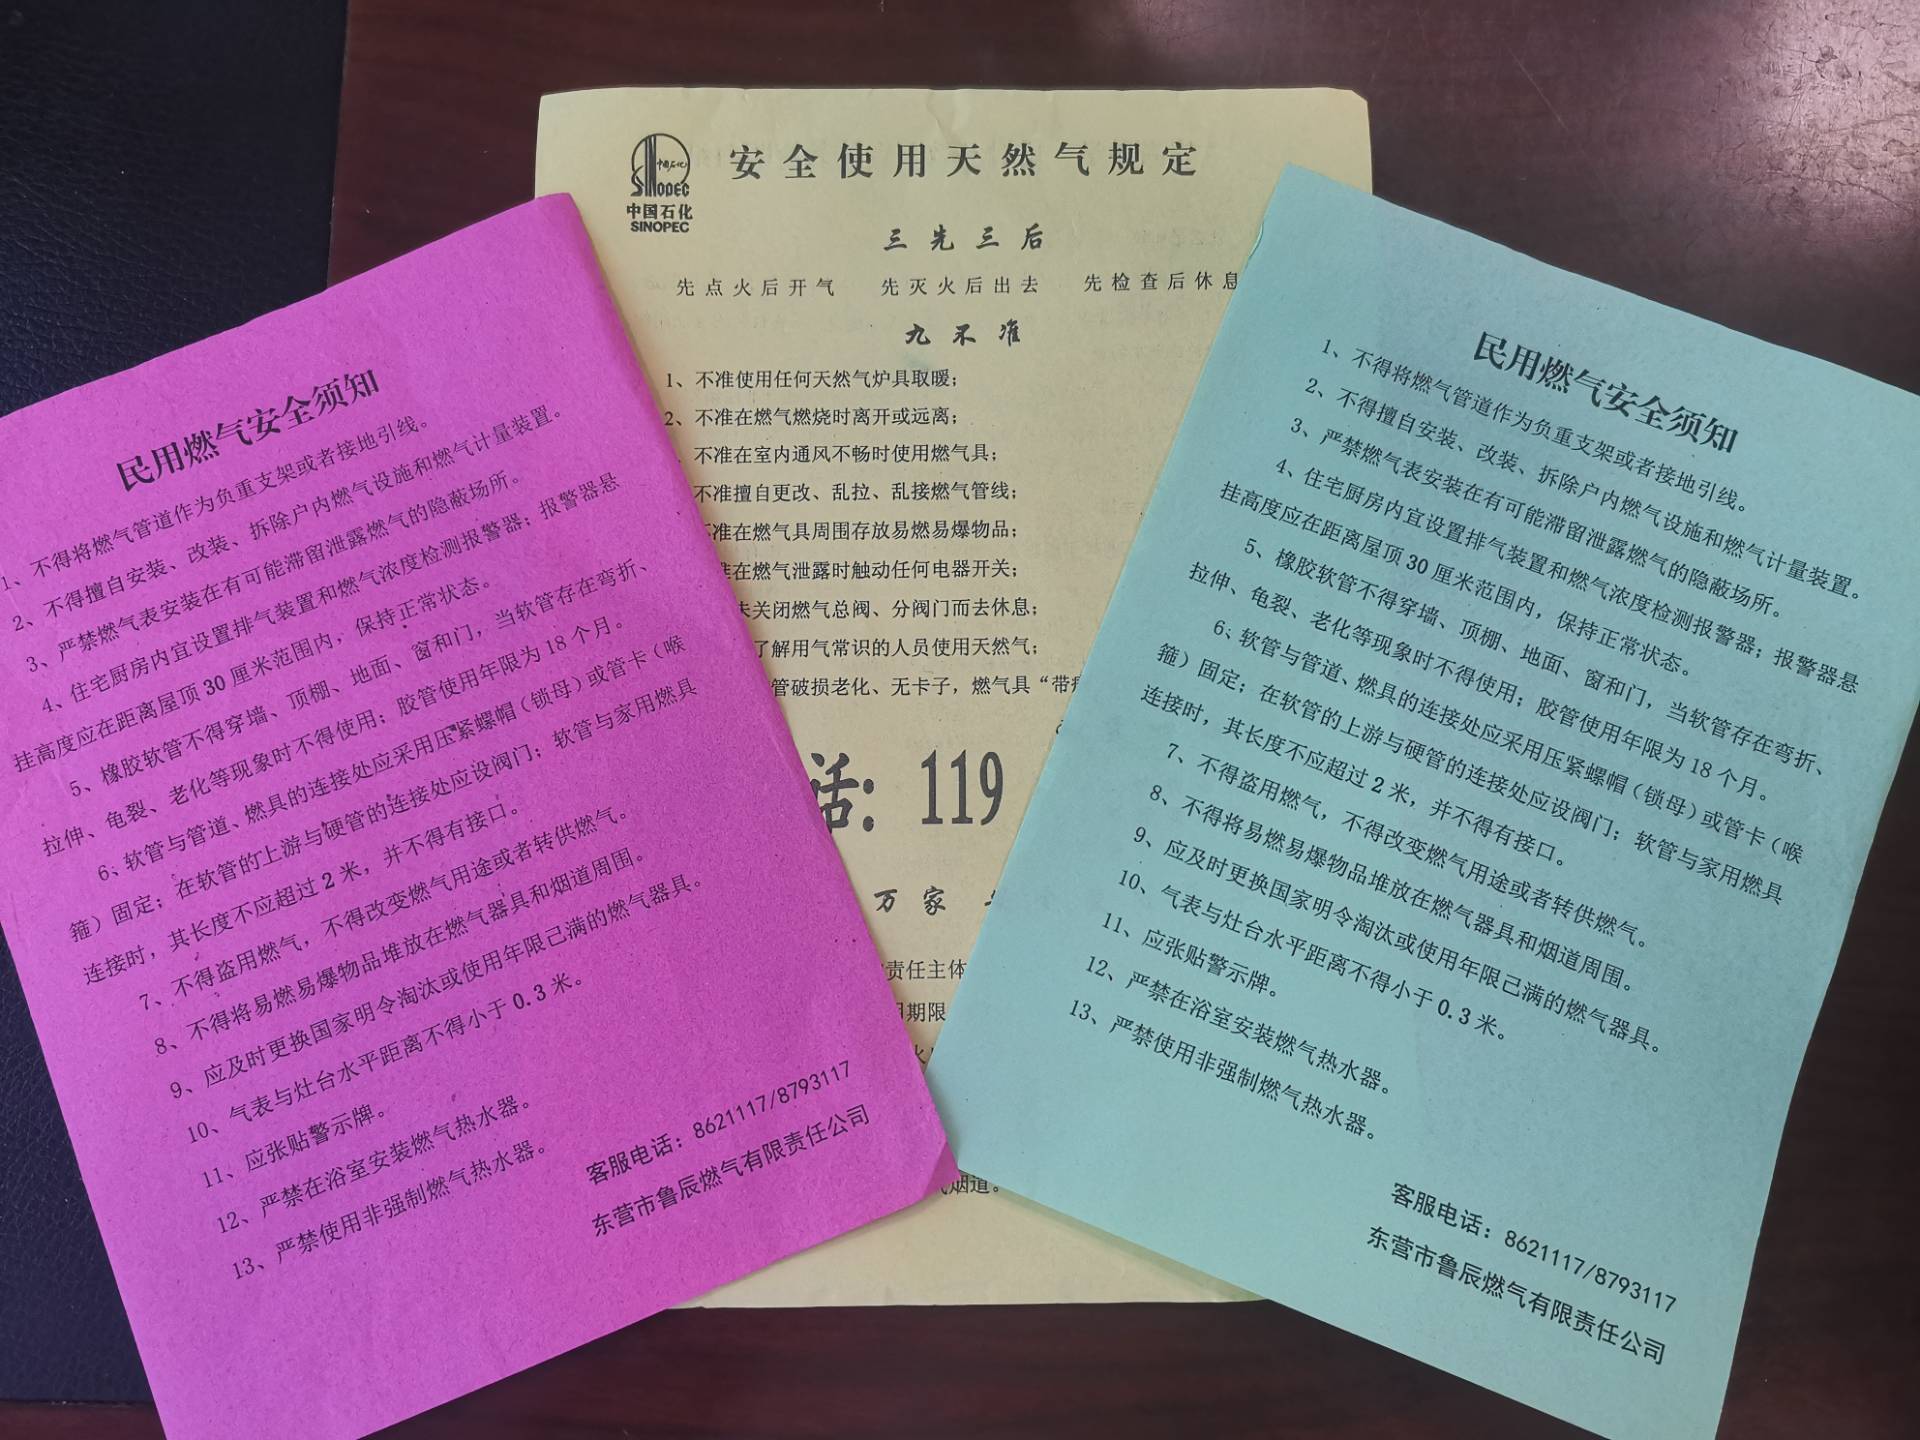 民用燃气安全须知
1、不得将燃气管道作为负重支架或者接地引线。
2、不得擅自安装、改装、拆除户内燃气设施和燃气计量装置。
3、严禁燃气表安装在有可能滞留泄露燃气的隐蔽场所。
4、住宅厨房内宜设置排气装置和燃气浓度检测报警器；报警器悬
挂高度应在距离屋顶30厘米范围内，保持正常状态。
5、橡胶软管不得穿墙、顶棚、地面、窗和门，当软管存在弯折、
拉伸、龟裂、老化等现象时不得使用；胶管使用年限为18个月。
6、软管与管道、燃具的连接处应采用压紧螺帽（锁母）或管卡（喉
箍）固定；在软管的上游与硬管的连接处应设阀门；软管与家用燃具
连接时，其长度不应超过2米，并不得有接口。
7、不得盗用燃气，不得改变燃气用途或者转供燃气。
8、不得将易燃易爆物品堆放在燃气器具和烟道周围。
9、应及时更换国家明令淘汰或使用年限己满的燃气器具。
10、气表与灶台水平距离不得小于0.3米。
11、应张贴警示牌。
12、严禁在浴室安装燃气热水器。
13、严禁使用非强制燃气热水器。
客服电话：8621117/8793117
东营市鲁辰燃气有限责任公司
中国石化
SINOPEC
中国石化
SINOPEC
安全使用天然气规定
三先三后
先点火后开气 先灭火后出去 先检查后休息
九不准
1、不准使用任何天然气炉具取暖；
2、不准在燃气燃烧时离开或远离；
、不准在室内通风不畅时使用燃气具；
不准擅自更改、乱拉、乱接燃气管线；
不准在燃气具周围存放易燃易爆物品；
在燃气泄露时触动任何电器开关；
未关闭燃气总阀、分阀门而去休息；
了解用气常识的人员使用天然气；
管破损老化、无卡子，燃气具“带
话：119
万家
责任主体
期限
烟道。
民用燃气安全须知
1、不得将燃气管道作为负重支架或者接地引线。
2、不得擅自安装、改装、拆除户内燃气设施和燃气计量装置。
3、严禁燃气表安装在有可能滞留泄露燃气的隐蔽场所。
4、住宅厨房内宜设置排气装置和燃气浓度检测报警器；报警器悬
挂高度应在距离屋顶30厘米范围内，保持正常状态。
5、橡胶软管不得穿墙、顶棚、地面、窗和门，当软管存在弯折、
拉伸、龟裂、老化等现象时不得使用；胶管使用年限为18个月。
6、软管与管道、燃具的连接处应采用压紧螺帽（锁母）或管卡（喉
箍）固定；在软管的上游与硬管的连接处应设阀门；软管与家用燃具
连接时，其长度不应超过2米，并不得有接口。
7、不得盗用燃气，不得改变燃气用途或者转供燃气。
8、不得将易燃易爆物品堆放在燃气器具和烟道周围。
9、应及时更换国家明令淘汰或使用年限己满的燃气器具。
10、气表与灶台水平距离不得小于0.3米。
11、应张贴警示牌。
12、严禁在浴室安装燃气热水器。
13、严禁使用非强制燃气热水器。
客服电话：8621117/8793117
东营市鲁辰燃气有限责任公司